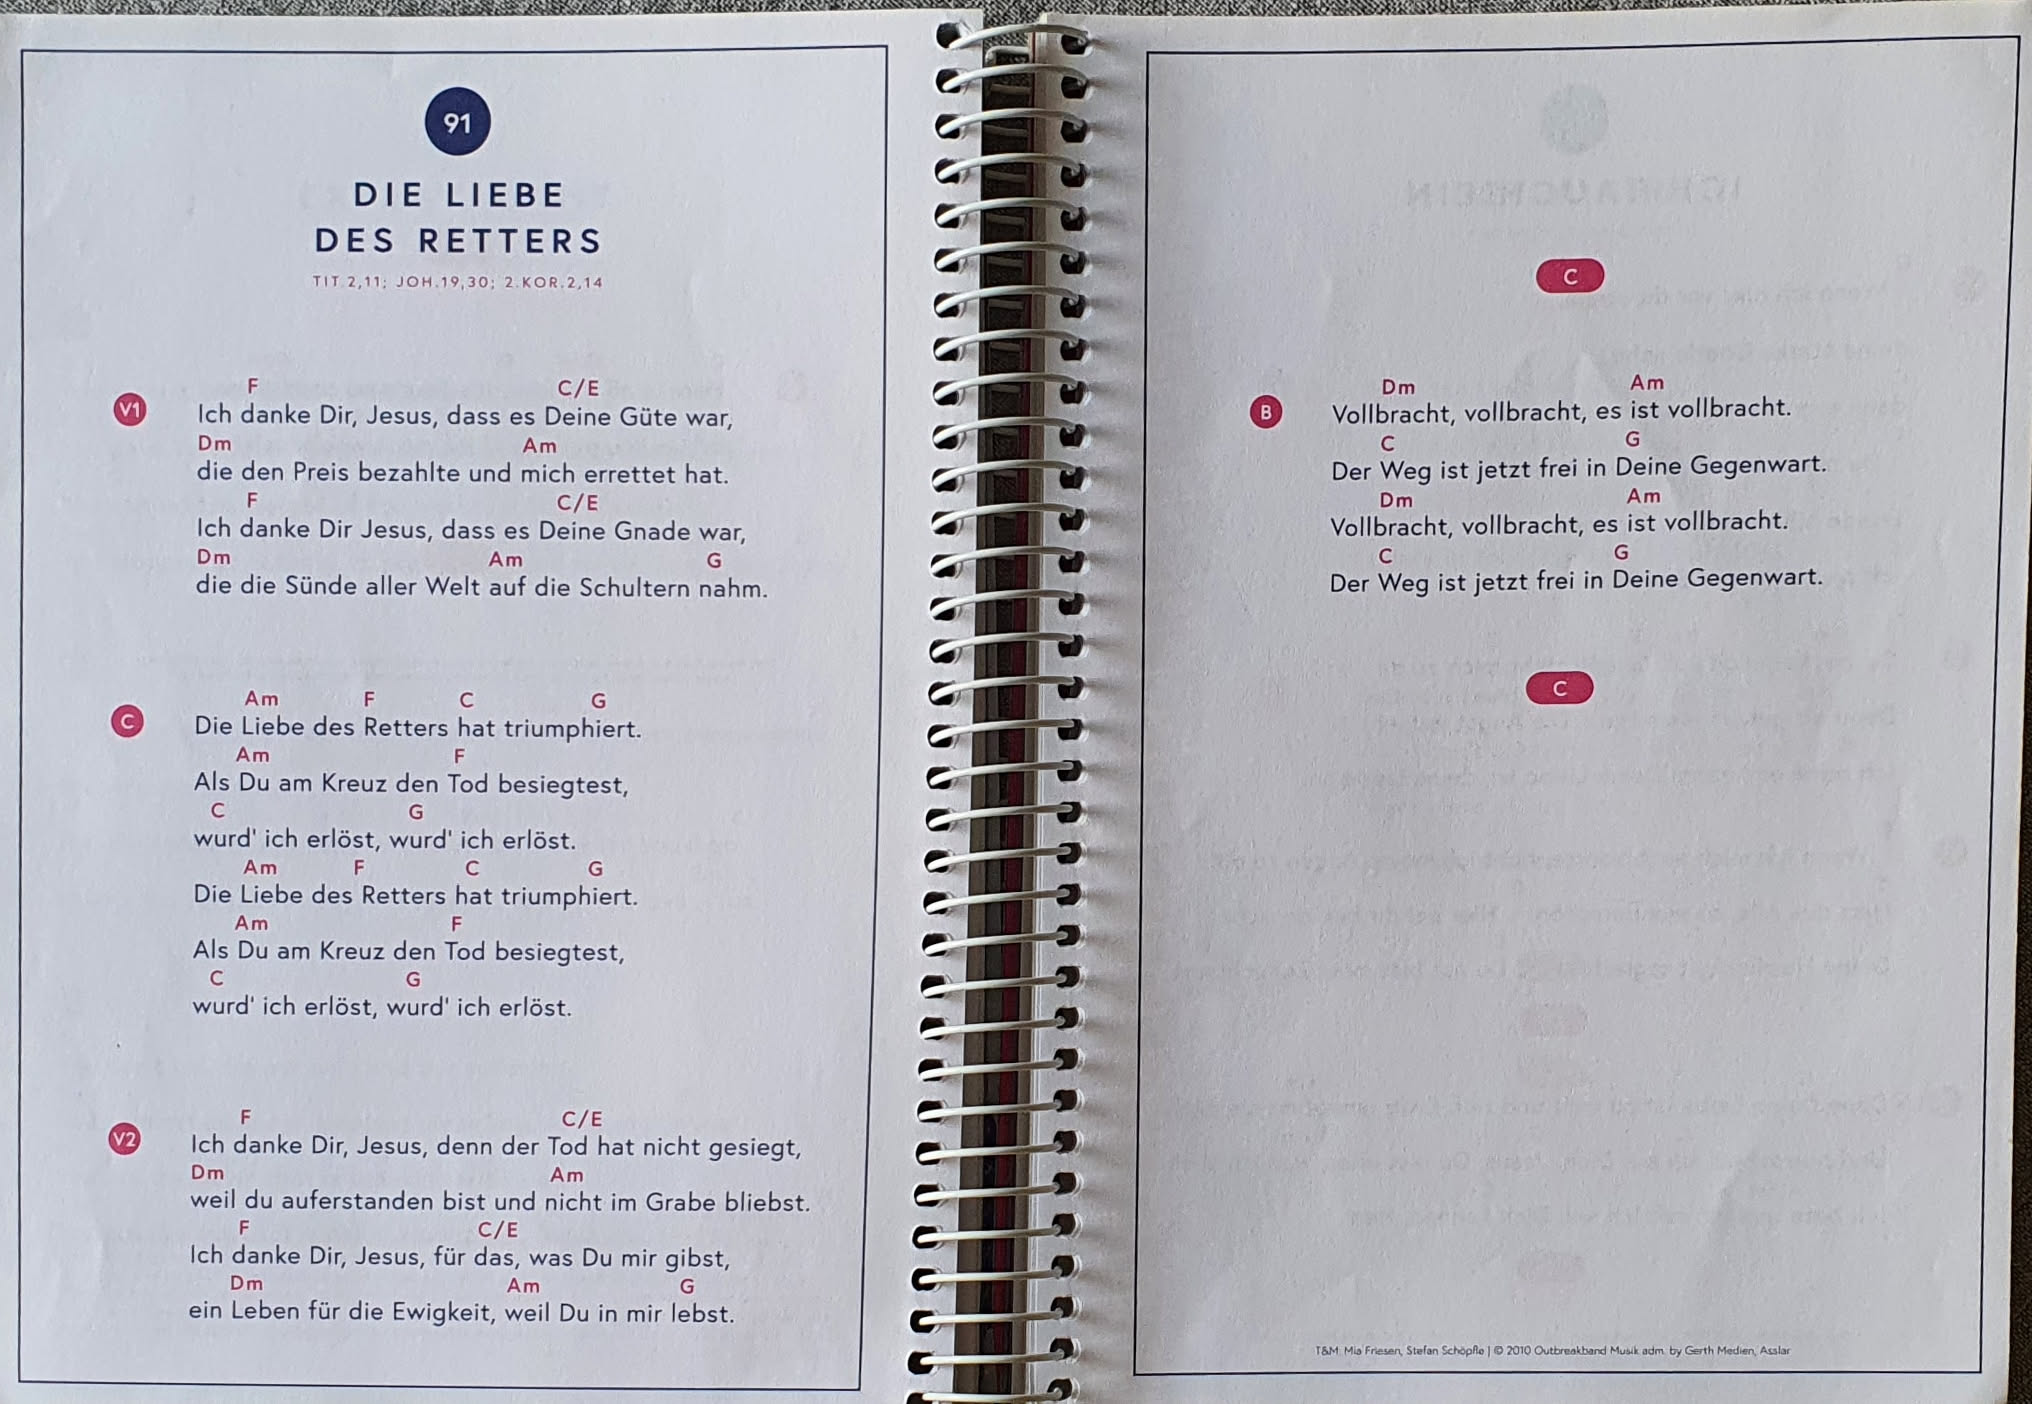 91
DIE LIEBE
DES RETTERS
TIT.2,11; JOH.19,30; 2.KOR.2,14
F C/E
V1 Ich danke Dir, Jesus, dass es Deine Güte war,
Dm Am
die den Preis bezahlte und mich errettet hat.
F C/E
Ich danke Dir Jesus, dass es Deine Gnade war,
Dm Am G
die die Sünde aller Welt auf die Schultern nahm.
Am F C G
C Die Liebe des Retters hat triumphiert.
Am F
Als Du am Kreuz den Tod besiegtest,
C G
wurd' ich erlöst, wurd' ich erlöst.
Am F C G
Die Liebe des Retters hat triumphiert.
Am F
Als Du am Kreuz den Tod besiegtest,
C G
wurd' ich erlöst, wurd' ich erlöst.
F C/E
V2 Ich danke Dir, Jesus, denn der Tod hat nicht gesiegt,
Dm Am
weil du auferstanden bist und nicht im Grabe bliebst.
F C/E
Ich danke Dir, Jesus, für das, was Du mir gibst,
Dm Am G
ein Leben für die Ewigkeit, weil Du in mir lebst.
C
Dm Am
B Vollbracht, vollbracht, es ist vollbracht.
C G
Der Weg ist jetzt frei in Deine Gegenwart.
Dm Am
Vollbracht, vollbracht, es ist vollbracht.
C G
Der Weg ist jetzt frei in Deine Gegenwart.
C
T&M: Mia Friesen, Stefan Schöpfle | © 2010 Outbreakband Musik adm. by Gerth Medien, Asslar